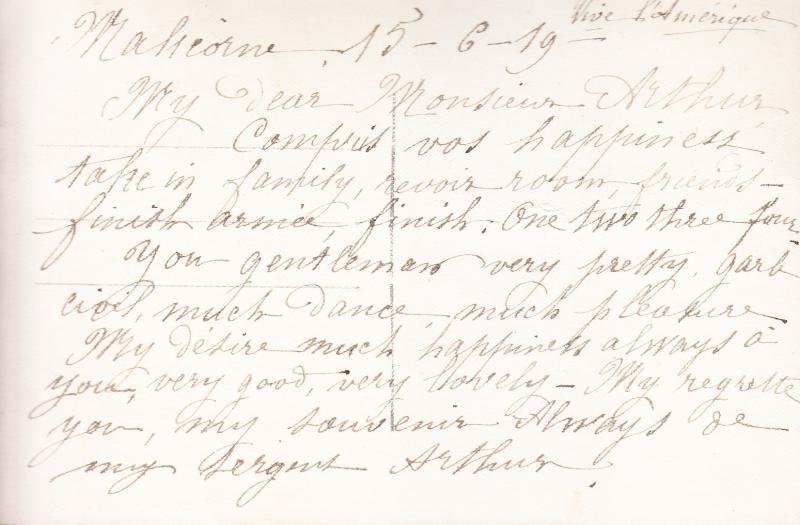 Vive l'Amérique
Malicorne, 15-6-19
My dear Monsieur Arthur,
Compris vos happiness
take in family, revoir room, friends-
finish armée, finish. One two three four
You gentleman very pretty. garb
civil, much dance much pleasure
My désire much happiness always à
you, very good, very lovely - My regrette
you, my souvenir Always de
my Sergent Arthur.